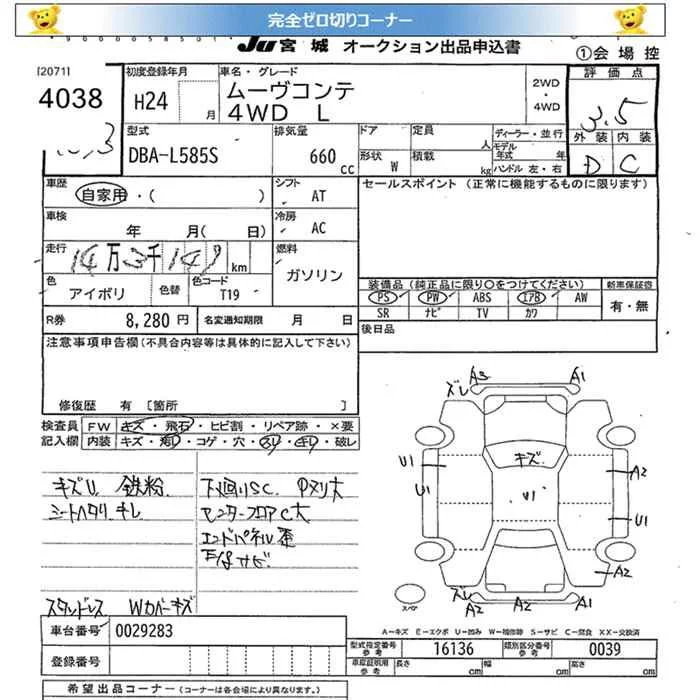 完全ゼロ切りコーナー
JU宮城 オークション出品申込書
①会場控
[2071]
4038
初度登録年月
H24 月
車名・グレード
ムーヴコンテ
4WD L
2WD
・
4WD
評価点
3.5
外装 内装
D C
型式
DBA-L585S
排気量
660 cc
ドア 定員 人
形状 W 積載 kg
ディーラー・並行
モデル年式 年
ハンドル 左・右
車歴
自家用・( )
シフト
AT
セールスポイント (正常に機能するものに限ります)
車検
年 月( 日)
冷房
AC
走行
14万3千149 km
燃料
ガソリン
色
アイボリ
色替
色コード
T19
装備品 (純正品に限り○をつけてください)
新車保証書
PS PW ABS エアB AW
SR ナビ TV カワ
有・無
R券 8,280円
名変通知期限 月 日
後日品
注意事項申告欄(不具合内容等は具体的に記入して下さい)
修復歴 有 [箇所 ]
検査員記入欄
FW キズ・飛石・ヒビ割・リペア跡・×要
内装 キズ・汚レ・コゲ・穴・スリ・キレ・破レ
キズU 鉄粉
シートヘタリ キレ
下廻りSC Pヌリ大
センターフロアC大
エンドパネル歪
下廻サビ
スタッドレス Wカバーキズ
ズレ A3 A1
キズ
U1 U1 U1 A2 U1 A2
ズレ A2 A2 A1
スペア
A-キズ E-エクボ U-凹み W-補修跡 S-サビ C-腐食 XX-交換済
車台番号 0029283
登録番号
型式指定番号参考 16136
類別区分番号参考 0039
車庫証明用参考 長さ 幅 高さ
希望出品コーナー (コーナーは各会場により異なります。)